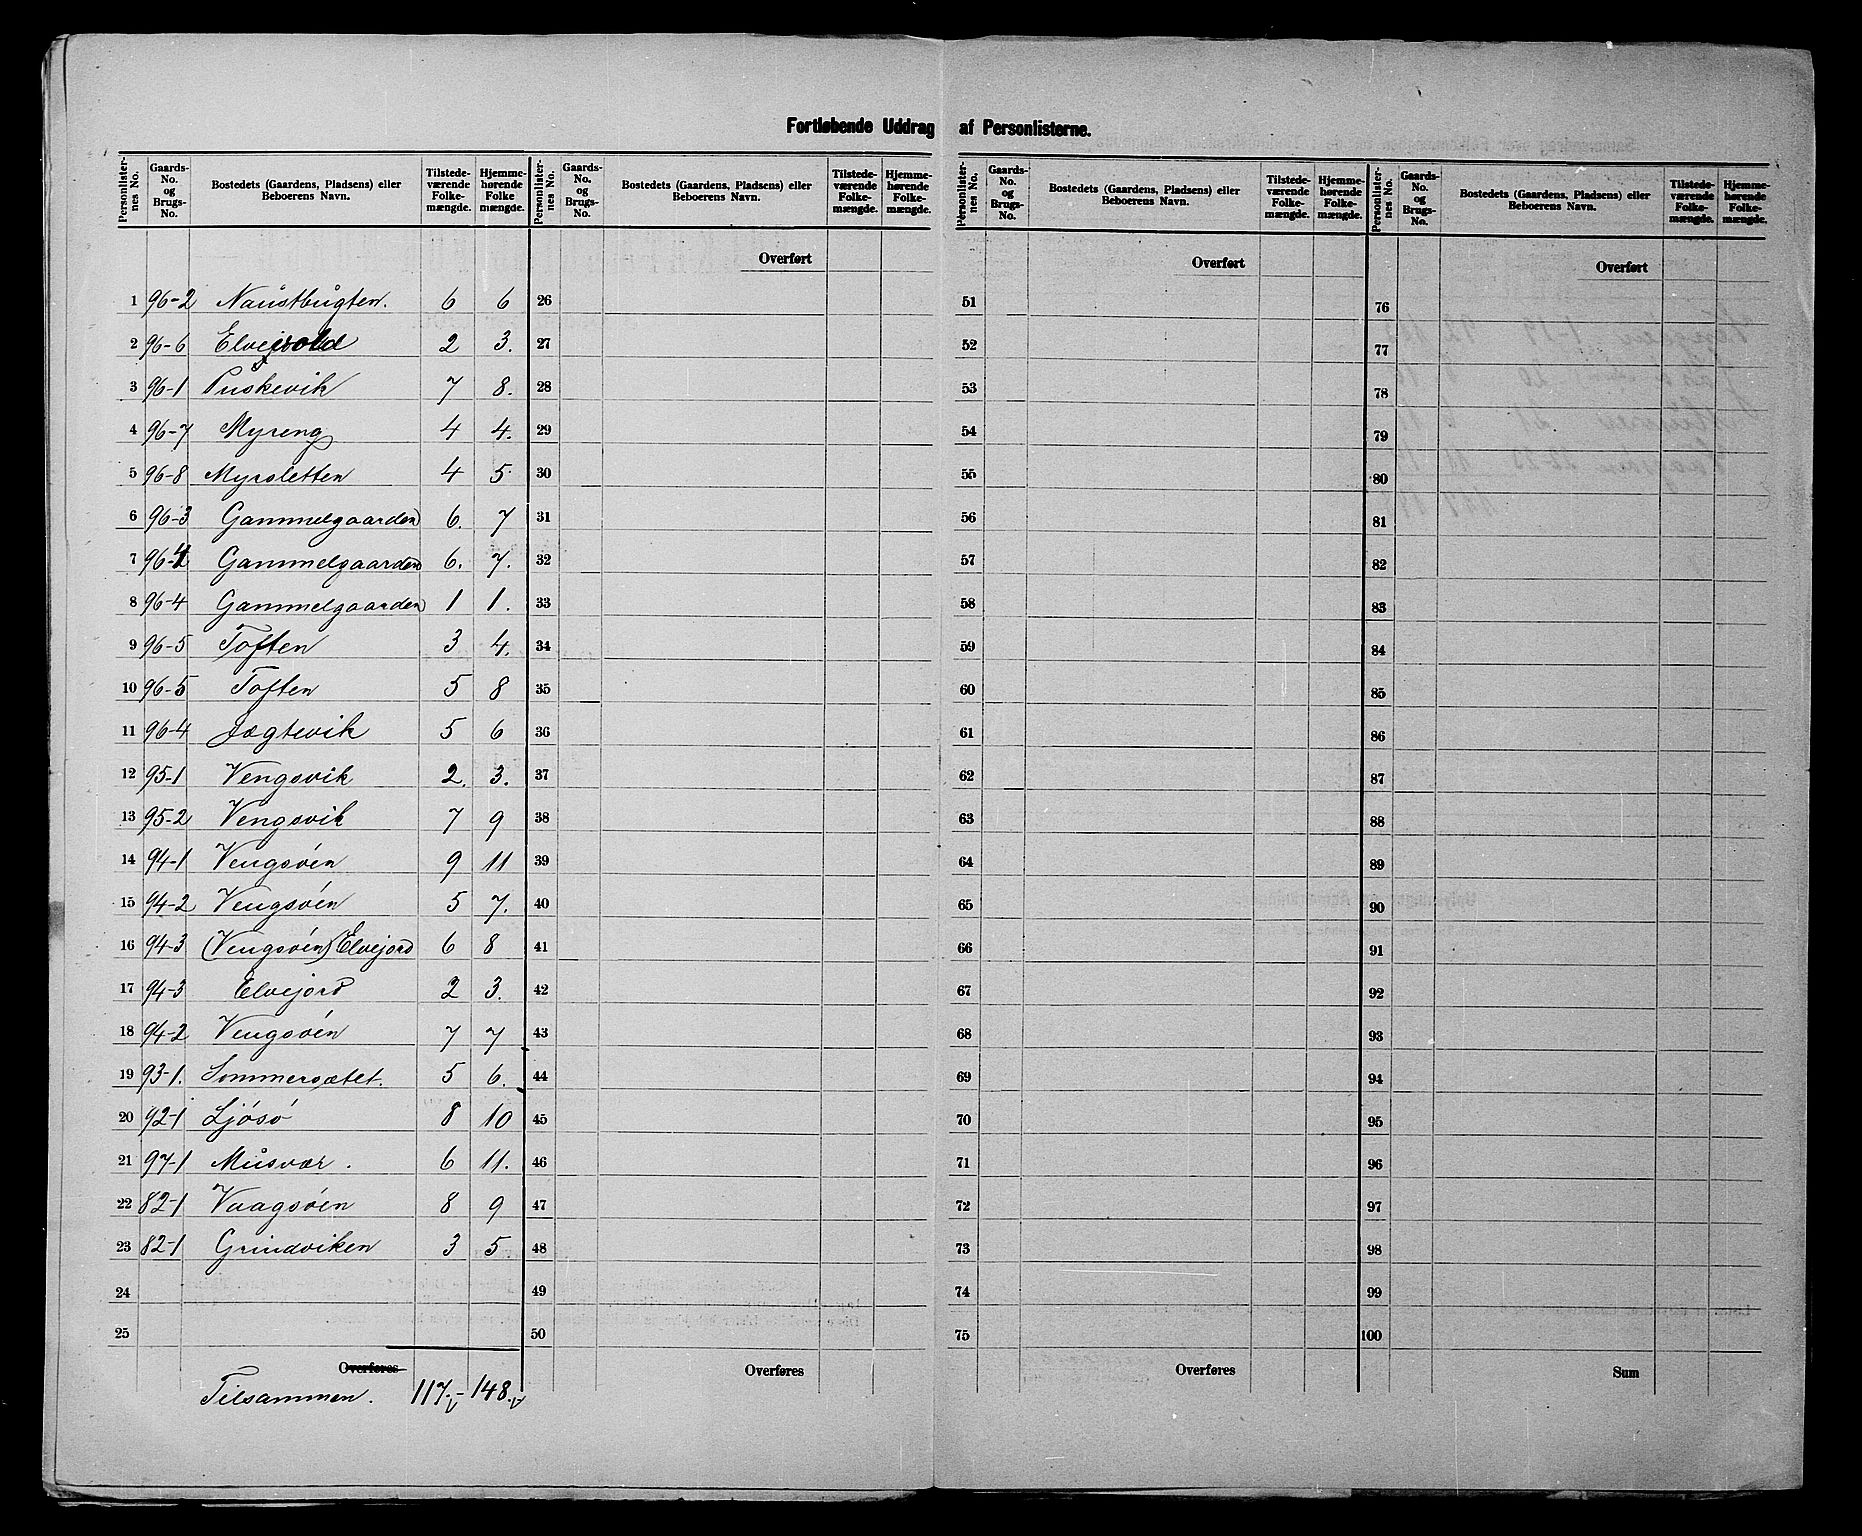 Fortløbende Uddrag af Personlisterne.
Personlister-nes No. | Gaards-No. og Brugs-No. | Bostedets (Gaardens, Pladsens) eller Beboerens Navn. | Tilstede-værende Folke-mængde. | Hjemme-hørende Folke mængde.
Personlister-nes No. | Gaards-No. og Brugs-No. | Bostedets (Gaardens, Pladsens) eller Beboerens Navn. | Tilstede-værende Folke-mængde. | Hjemme-hørende Folke-mængde.
Personlister-nes No. | Gaards-No. og Brugs-No. | Bostedets (Gaardens, Pladsens) eller Beboerens Navn. | Tilstede-værende Folke-mængde. | Hjemme-hørende Folke-mængde.
Personlister-nes No. | Gaards-No. og Brugs-No. | Bostedets (Gaardens, Pladsens) eller Beboerens Navn. | Tilstede-værende Folke-mængde. | Hjemme-hørende Folke-mængde.
Overført Overført Overført
1 96-2 Naustbugten. 6 6 26 51 76
2 96-6 Elvevold 2 3. 27 52 77
3 96-1 Puskevik 7 8. 28 53 78
4 96-7 Myreng 4 4. 29 54 79
5 96-8 Myrsletten 4 5. 30 55 80
6 96-3 Gammelgaarden 6. 7 31 56 81
7 96-4 Gammelgaarden 6. 7. 32 57 82
8 96-4 Gammelgaarden 1 1. 33 58 83
9 96-5 Toften 3 4. 34 59 84
10 96-5 Toften 5 8 35 60 85
11 96-4 Jægtevik 5 6 36 61 86
12 95-1 Vengsvik 2. 3. 37 62 87
13 95-2 Vengsvik 7 9 38 63 88
14 94-1 Vengsøen 9 11 39 64 89
15 94-2 Vengsøen 5 7. 40 65 90
16 94-3 (Vengsøen) Elvejord 6 8 41 66 91
17 94-3 Elvejord 2 3. 42 67 92
18 94-2 Vengsøen 7 7 43 68 93
19 93-1. Sommersætet. 5 6. 44 69 94
20 92-1 Ljøsø 8 10 45 70 95
21 97-1 Musvær. 6 11. 46 71 96
22 82-1 Vaagsøen 8 9 47 72 97
23 82-1 Grindviken 3 5 48 73 98
24 49 74 99
25 50 75 100
Overføres Overføres Overføres Sum
Tilsammen. 117.- 148.